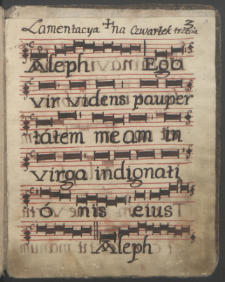 Lamentacya na Czwartek trzecia
3.
Aleph Ego
vir videns pauper
tatem meam in
virga indignati
ó nis eius
Aleph